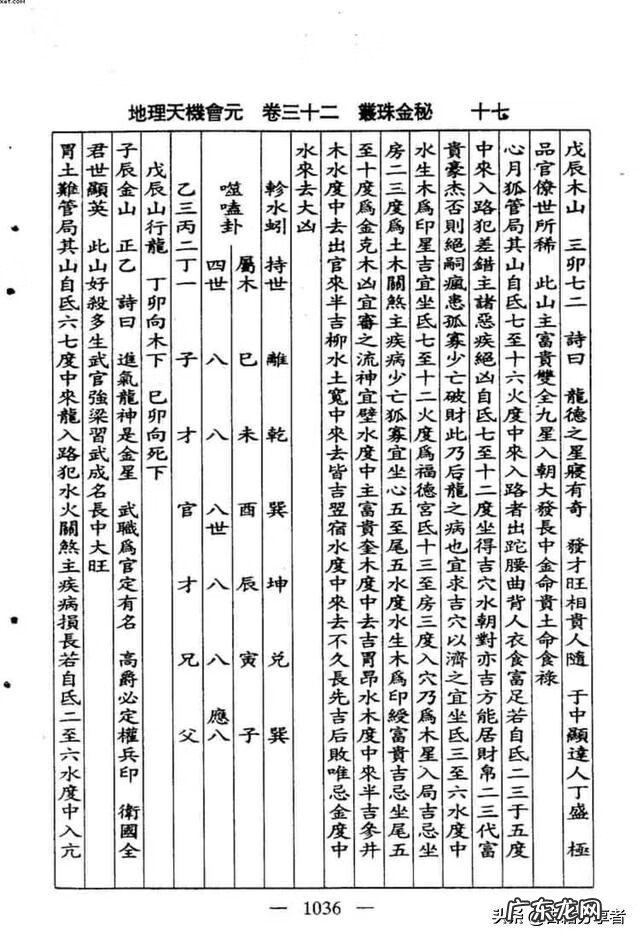 地理天機會元　卷三十二　叢珠金秘　十七
戊辰木山　三卯七二　詩曰　龍德之星寢有奇　發才旺相貴人隨　于中顯達人丁盛　極
品官僚世所稀　此山主富貴雙全九星入朝大發長中金命貴土命食祿
心月狐管局其山自氐七至十六火度中來入路者出跎腰曲背人衣食富足若自氐二三于五度
中來入路犯差錯主諸惡疾絕凶自氐七至十二度坐得吉穴水朝對亦吉方能居財帛二三代富
貴豪杰否則絕嗣瘋患孤寡少亡破財此乃后龍之病也宜求吉穴以濟之宜坐氐三至六水度中
水生木為印星吉宜坐氐七至十二火度為福德宮氐十三至房三度入穴乃為木星入局吉忌坐
房二三度為土木關煞主疾病少亡狐寡宜坐心五至尾五水度水生木為印綬富貴吉忌坐尾五
至十度為金克木凶宜審之流神宜壁水度中主富貴奎木度中去吉胃昂水木度中來半吉參井
木水度中去出官來半吉柳水土寬中來去皆吉翌宿水度中來去不久長先吉后敗唯忌金度中
水來去大凶
軫水蚓　持世　離　乾　巽　坤　兌　巽
噬嗑卦　屬木　巳　未　酉　辰　寅　子
四世　八　八　八世　八　八　應八
乙三丙二丁一　子　才　官　才　兄　父
戊辰山行龍　丁卯向木下　巳卯向死下
子辰金山　正乙　詩曰　進氣龍神是金星　武職為官定有名　高爵必定權兵印　衛國全
君世顯英　此山好殺多生武官強梁習武成名長中大旺
胃土雞管局其山自氐六七度中來龍入路犯水火關煞主疾病損長若自氐二至六水度中入亢
— 1036 —
头条@古籍分享者
广东龙网